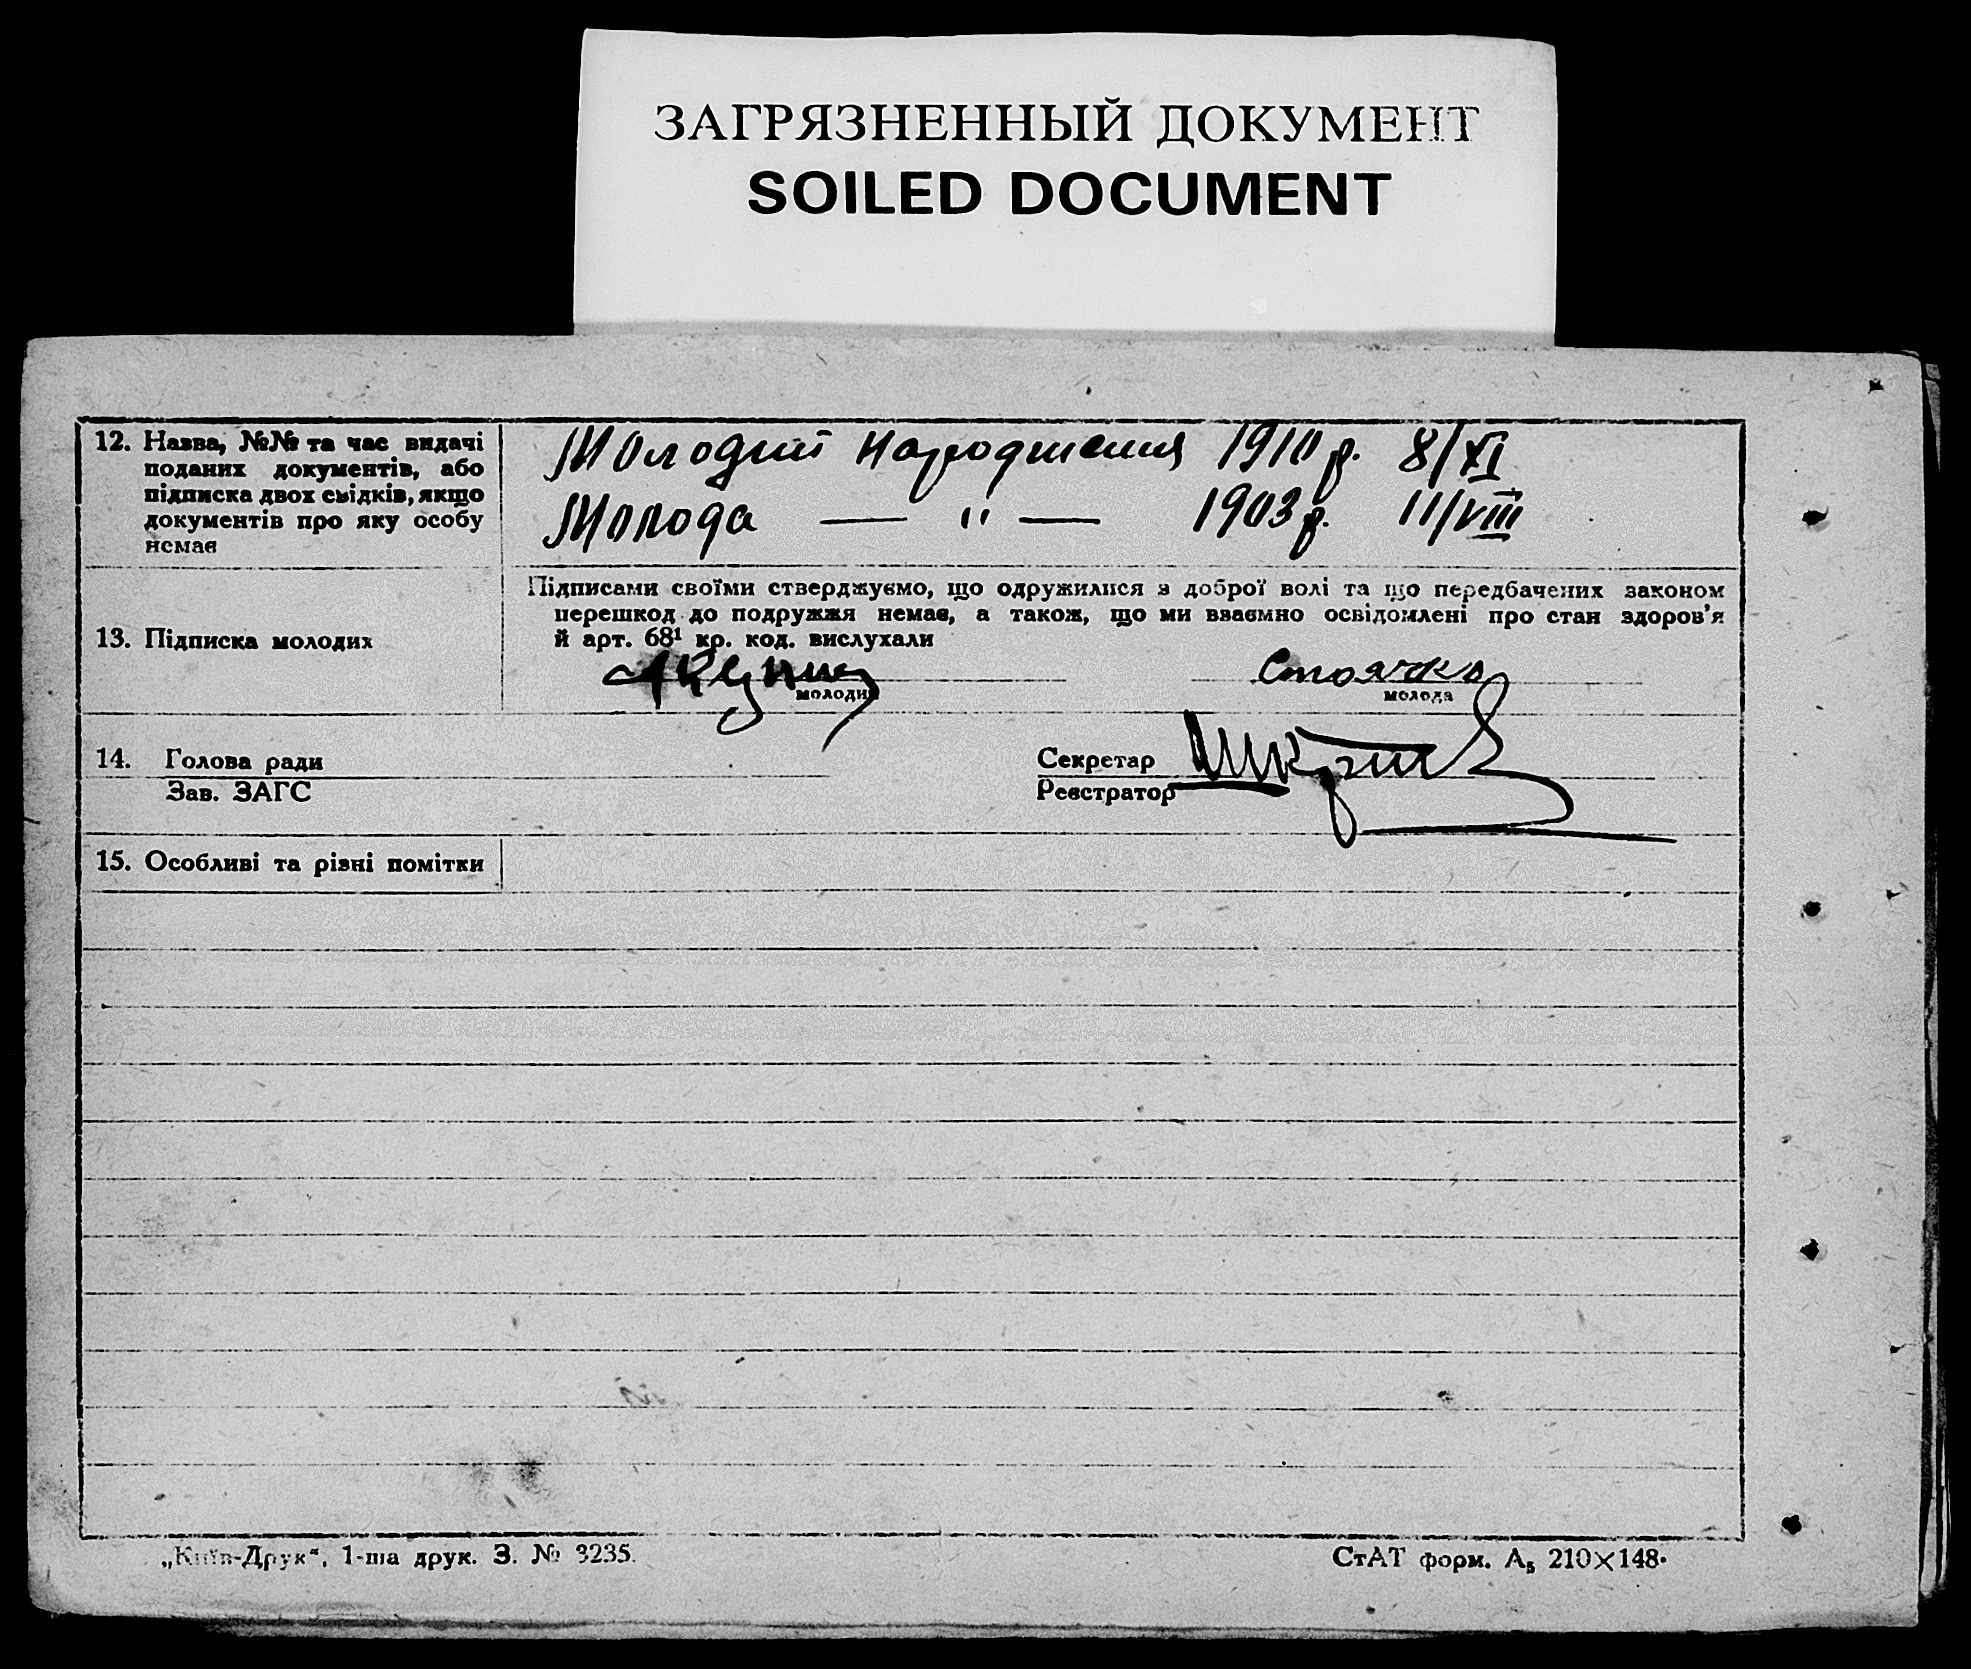 ЗАГРЯЗНЕННЫЙ ДОКУМЕНТ
SOILED DOCUMENT
12. Назва, №№ та час видачі
поданих документів, або
підписка двох свідків, якщо
документів про яку особу
немає
Молодий народження 1910 р. 8/XI
Молода — " — 1903 р. 11/VIII
13. Підписка молодих
Підписами своїми стверджуємо, що одружилися з доброї волі та що передбачених законом
перешкод до подружжя немає, а також, що ми взаємно освідомлені про стан здоров'я
й арт. 68¹ кр. код. вислухали
молодий
молода
14. Голова ради
Зав. ЗАГС
Секретар
Реєстратор
15. Особливі та різні помітки
„Київ-Друк“, 1-ша друк. З. № 3235.
СтАТ форм. А₅ 210×148.